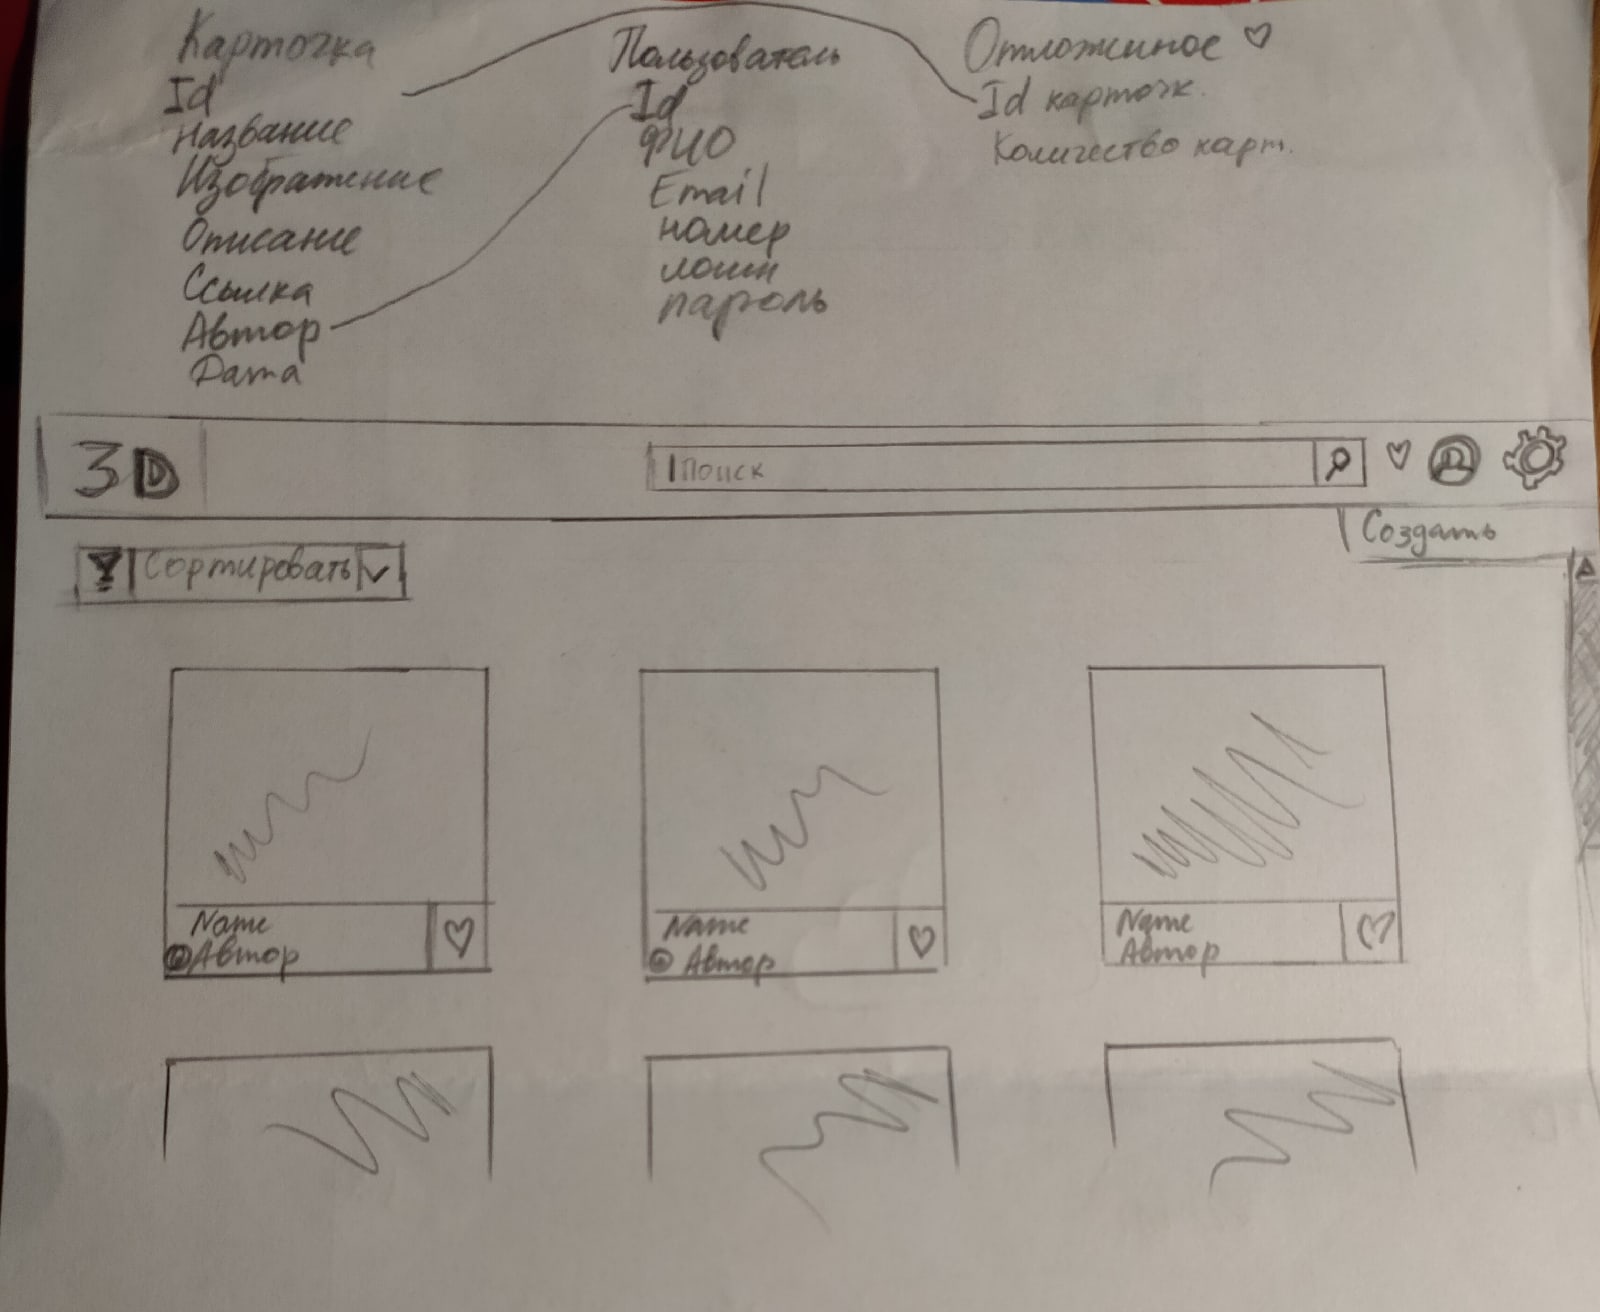 Карточка
Id
Название
Изображение
Описание
Ссылка
Автор
Дата
Пользователь
Id
ФИО
Email
номер
логин
пароль
Отложенное
Id карточк.
Количество карт.
3D
Поиск
Создать
Сортировать
Name
Автор
Name
Автор
Name
Автор